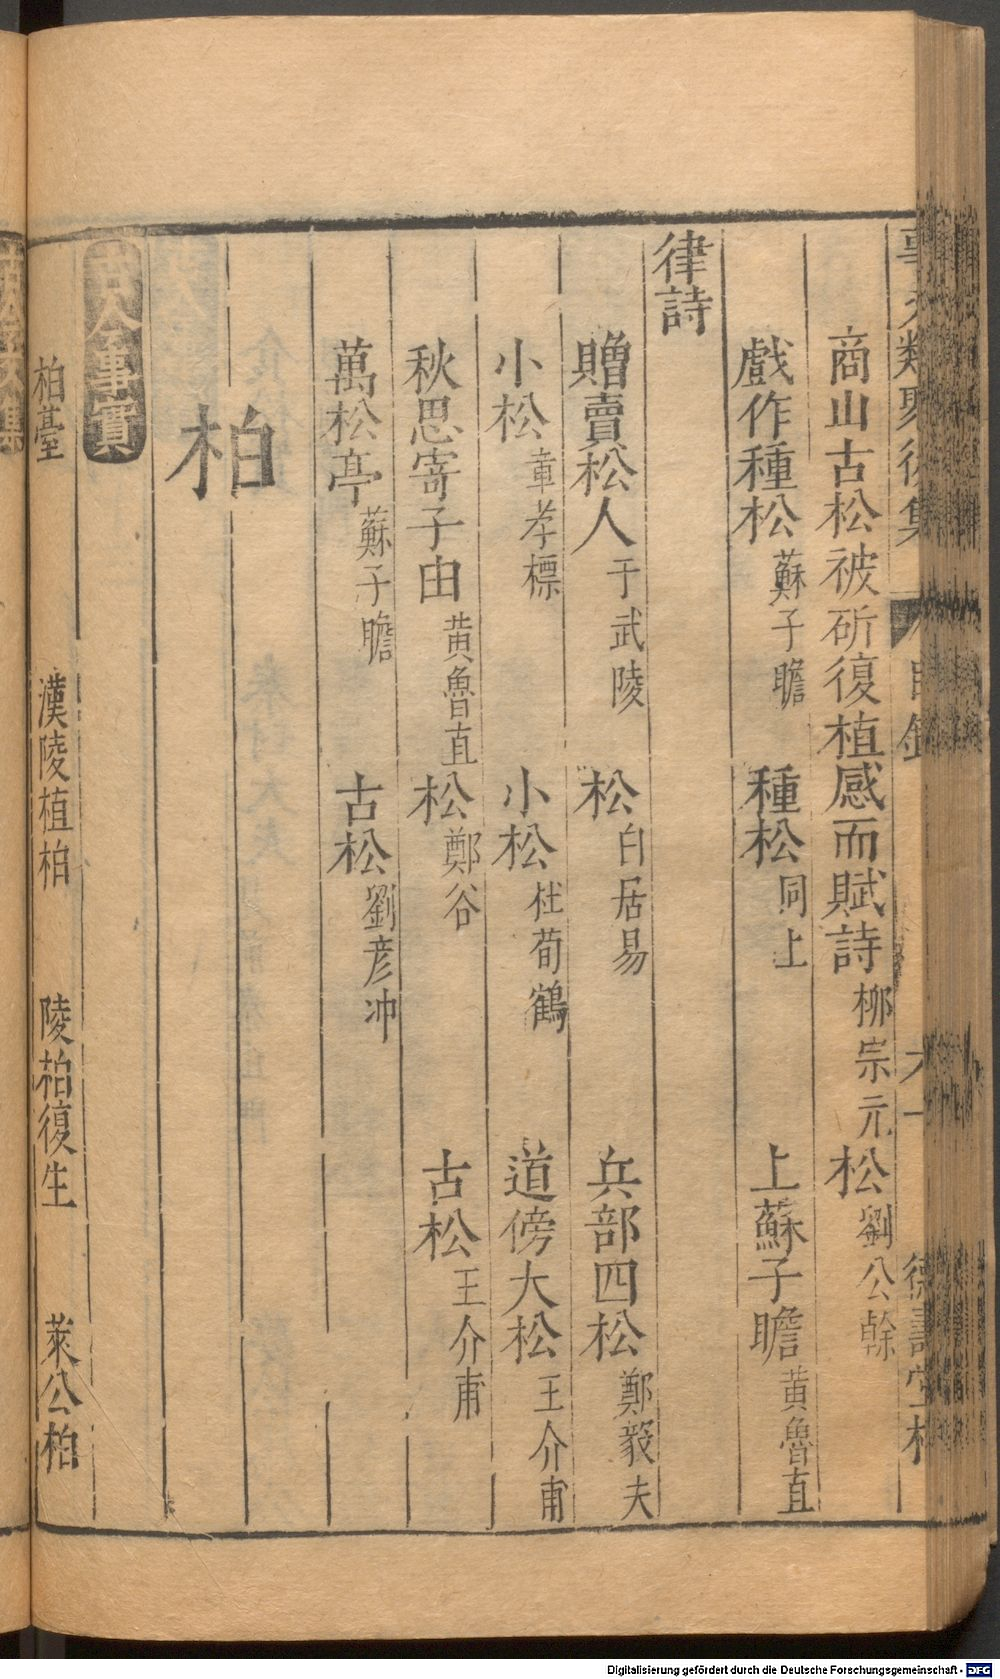 事文類聚後集 目錄 德壽堂梓
商山古松被斫復植感而賦詩 柳宗元 松 劉公幹
戲作種松 蘇子瞻 種松 同上 上蘇子瞻 黃魯直
律詩
贈賣松人 于武陵 松 白居易 兵部四松 鄭毅夫
小松 章孝標 小松 杜荀鶴 道傍大松 王介甫
秋思寄子由 黃魯直 松 鄭谷 古松 王介甫
萬松亭 蘇子瞻 古松 劉彥冲
柏
古今事實
柏臺 漢陵植柏 陵柏復生 萊公柏
Digitalisierung gefördert durch die Deutsche Forschungsgemeinschaft - DFG